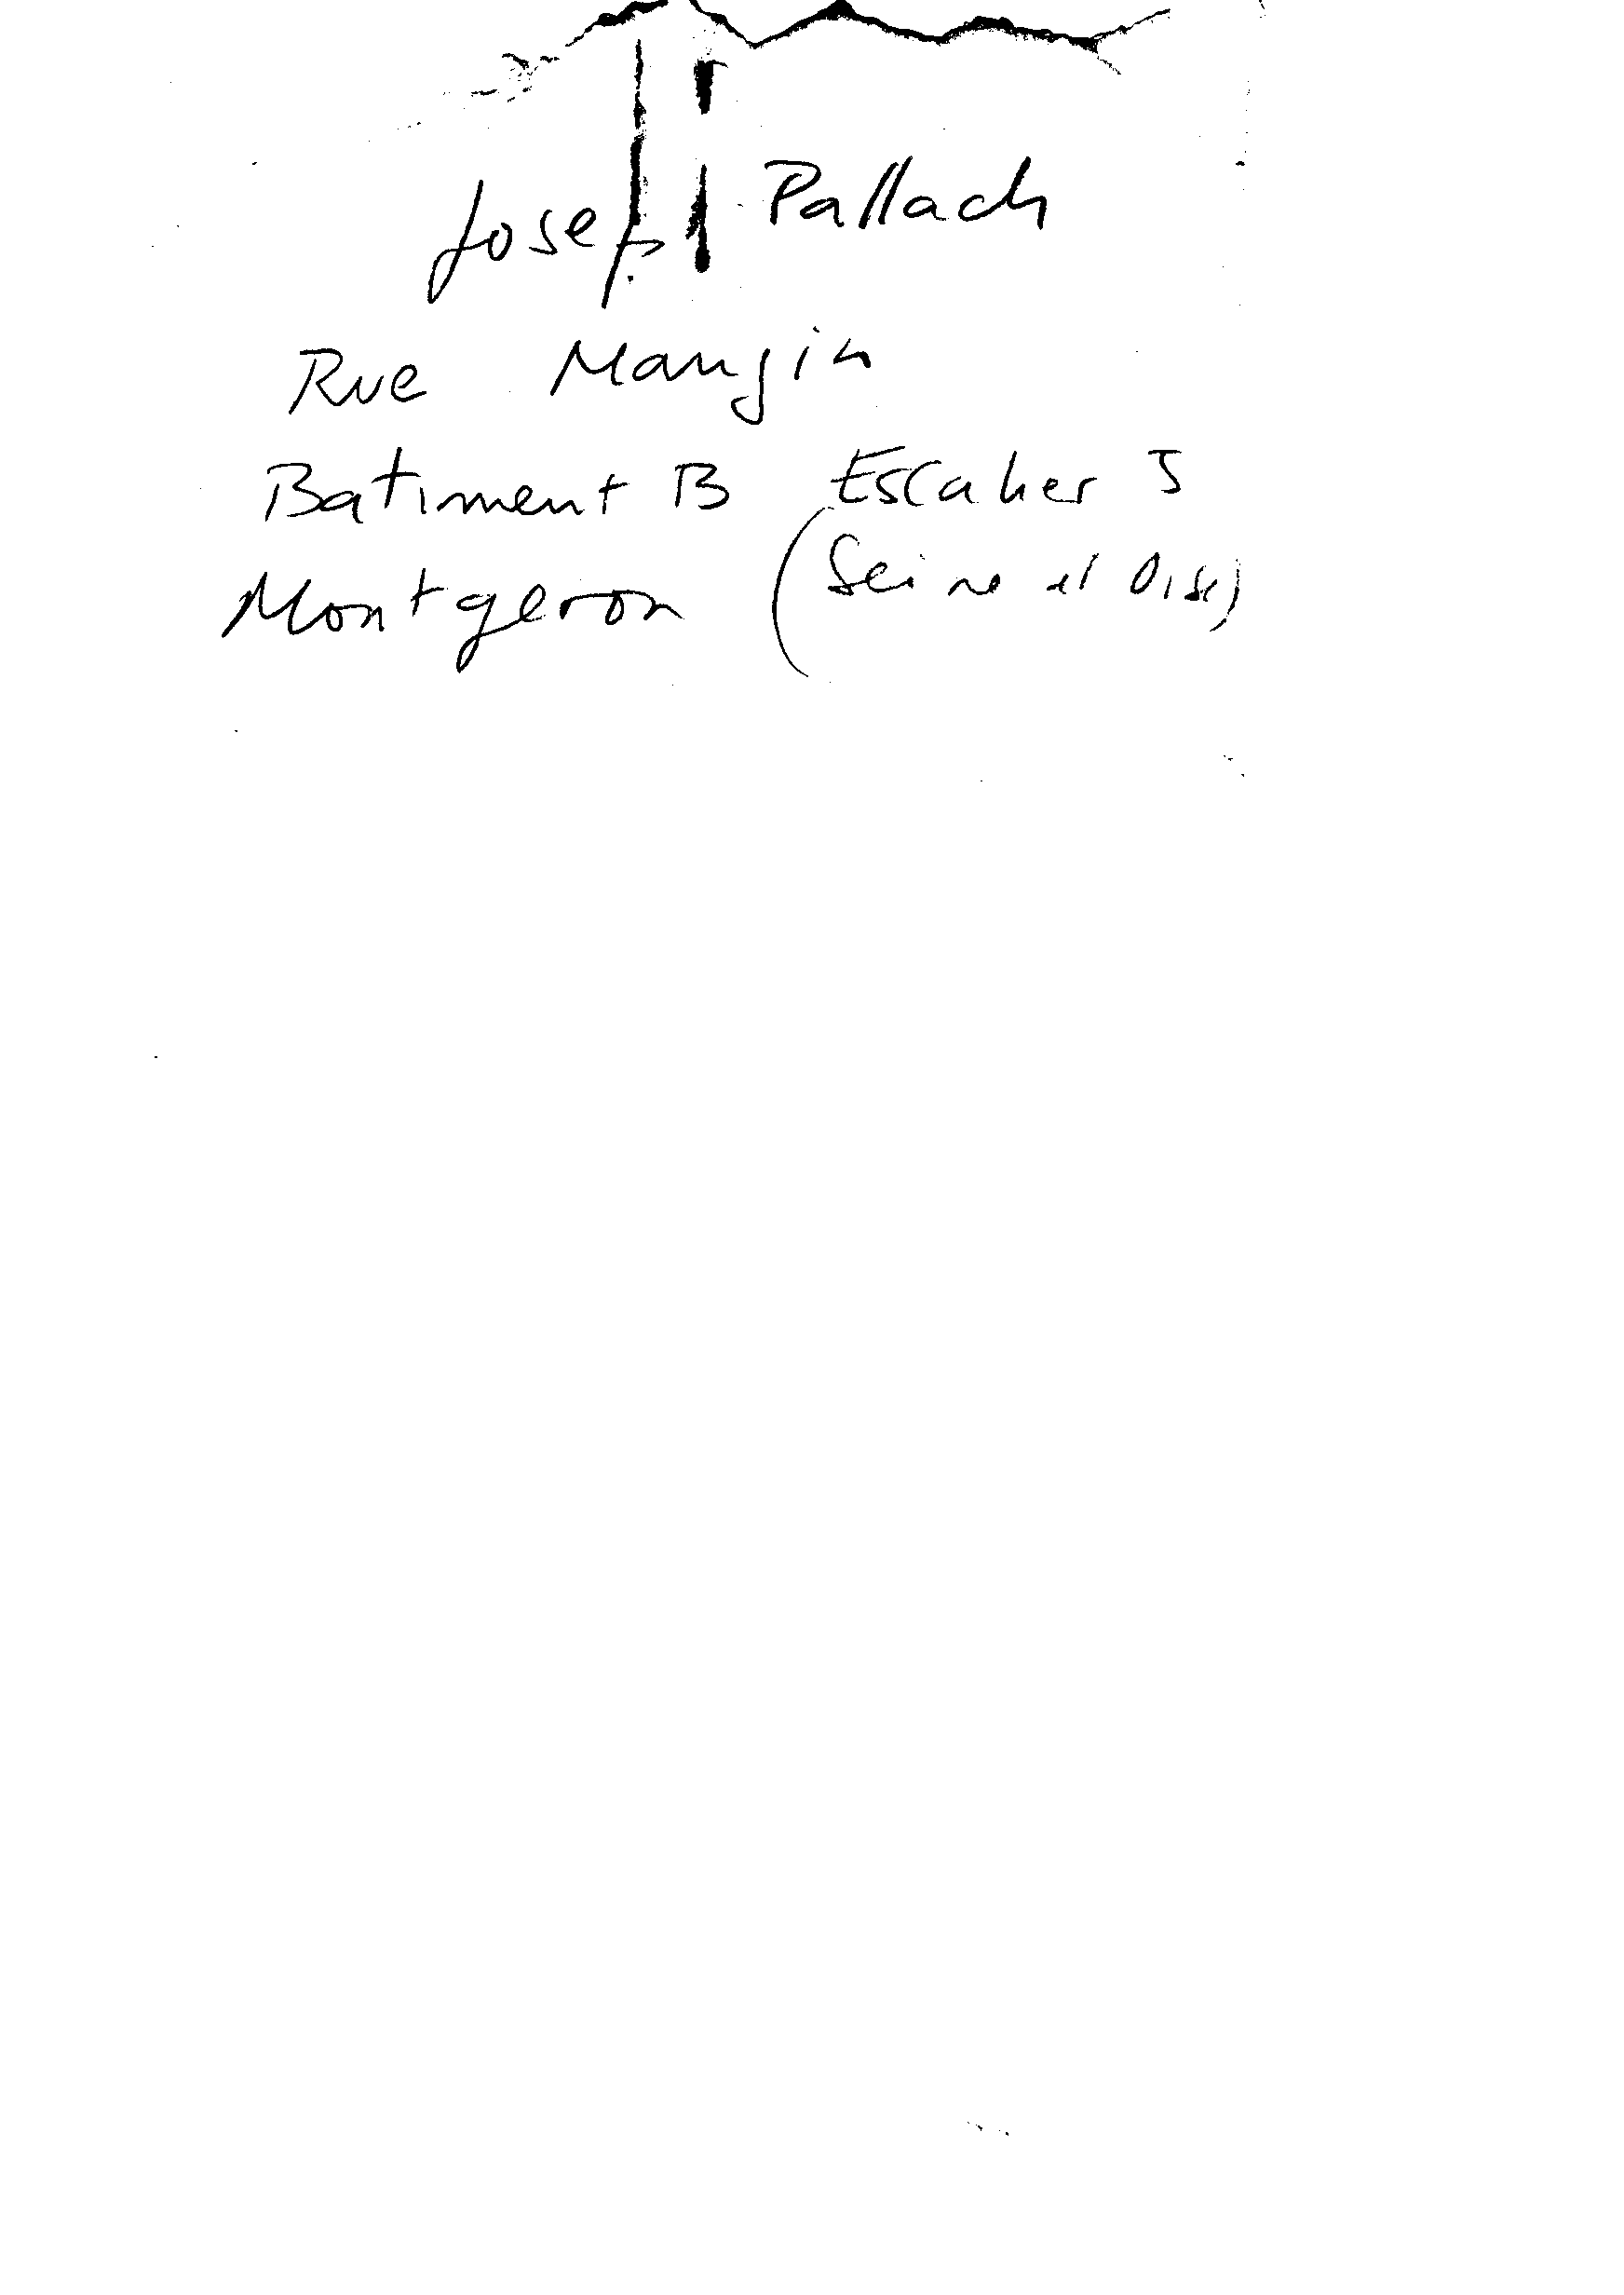 Josep Pallach
Rue Mangin
Batiment B Escalier 5
Montgeron (Seine et Oise)